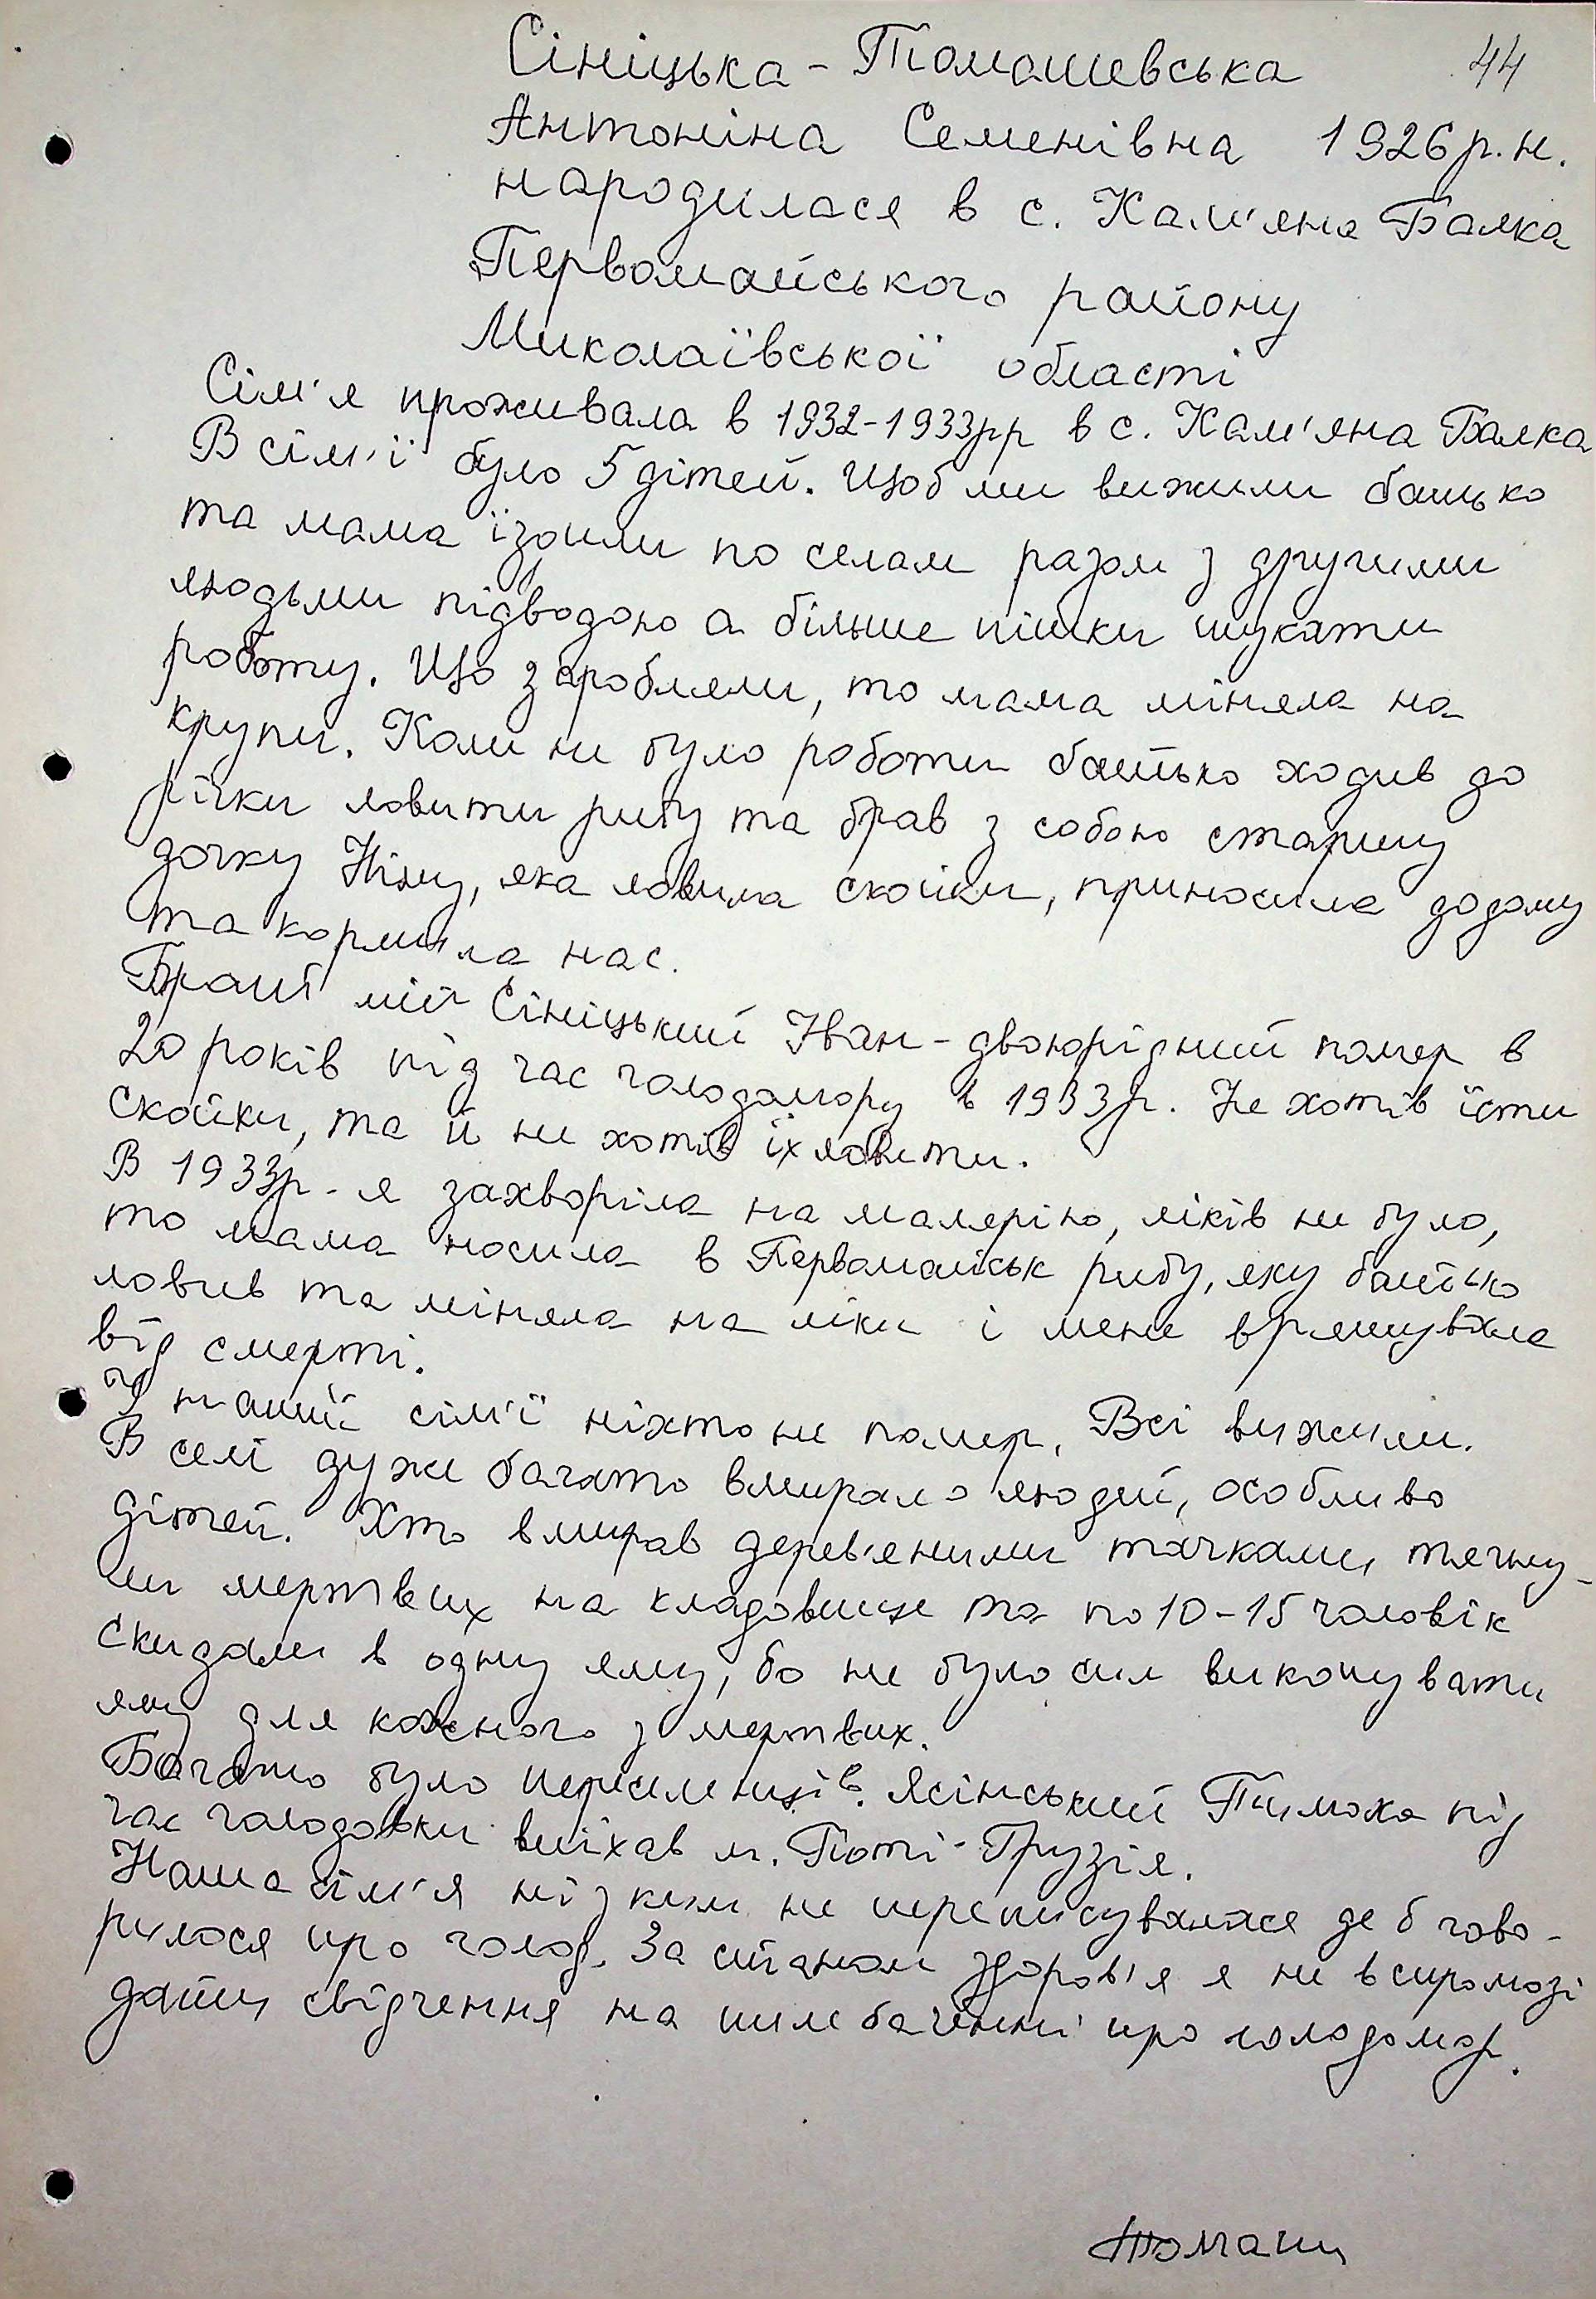 44
Сініцька - Томашевська
Антоніна Семенівна 1926 р. н.
народилася в с. Кам'яна Балка
Первомайського району
Миколаївської області
Сім'я проживала в 1932-1933рр в с. Кам'яна Балка
В сім'ї було 5 дітей. Щоб ми вижили батько
та мама їздили по селам разом з другими
людьми підводою а більше пішки шукати
роботу. Що заробляли, то мама міняла на
крупи. Коли не було роботи батько ходив до
річки ловити рибу та брав з собою старшу
дочку Ніну, яка ловила скойки, приносила додому
та кормила нас.
Брат мій Сініцький Іван - двоюрідний помер в
20 років під час голодомору в 1933р. Не хотів їсти
скойки, та й не хотів їх ловити.
В 1933р. я захворіла на малярію, ліків не було,
то мама носила в Первомайськ рибу, яку батько
ловив та міняла на ліки і мене врятувала
від смерті.
У нашій сім'ї ніхто не помер. Всі вижили.
В селі дуже багато вмирало людей, особливо
дітей. Хто вмирав дерев'яними тачками тягну-
ли мертвих на кладовище та по 10-15 чоловік
скидали в одну яму, бо не було сил викопувати
яму для кожного з мертвих.
Багато було переселенців. Ясінський Тимоха під
час голодовки виїхав м. Поті - Грузія.
Наша сім'я ні з ким не переписувалася де б гово-
рилося про голод. За станом здоров'я я не в спромозі
дати свідчення на телебаченні про голодомор.
Томаш